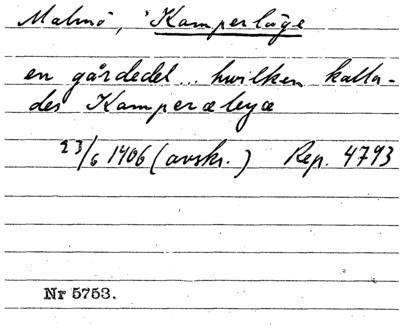 Malmö, Kamperläge
en gårdedel... hwilken kalla-
des Kamperæleyæ
23/6 1406 (avskr.) Rep. 4793
Nr 5753.